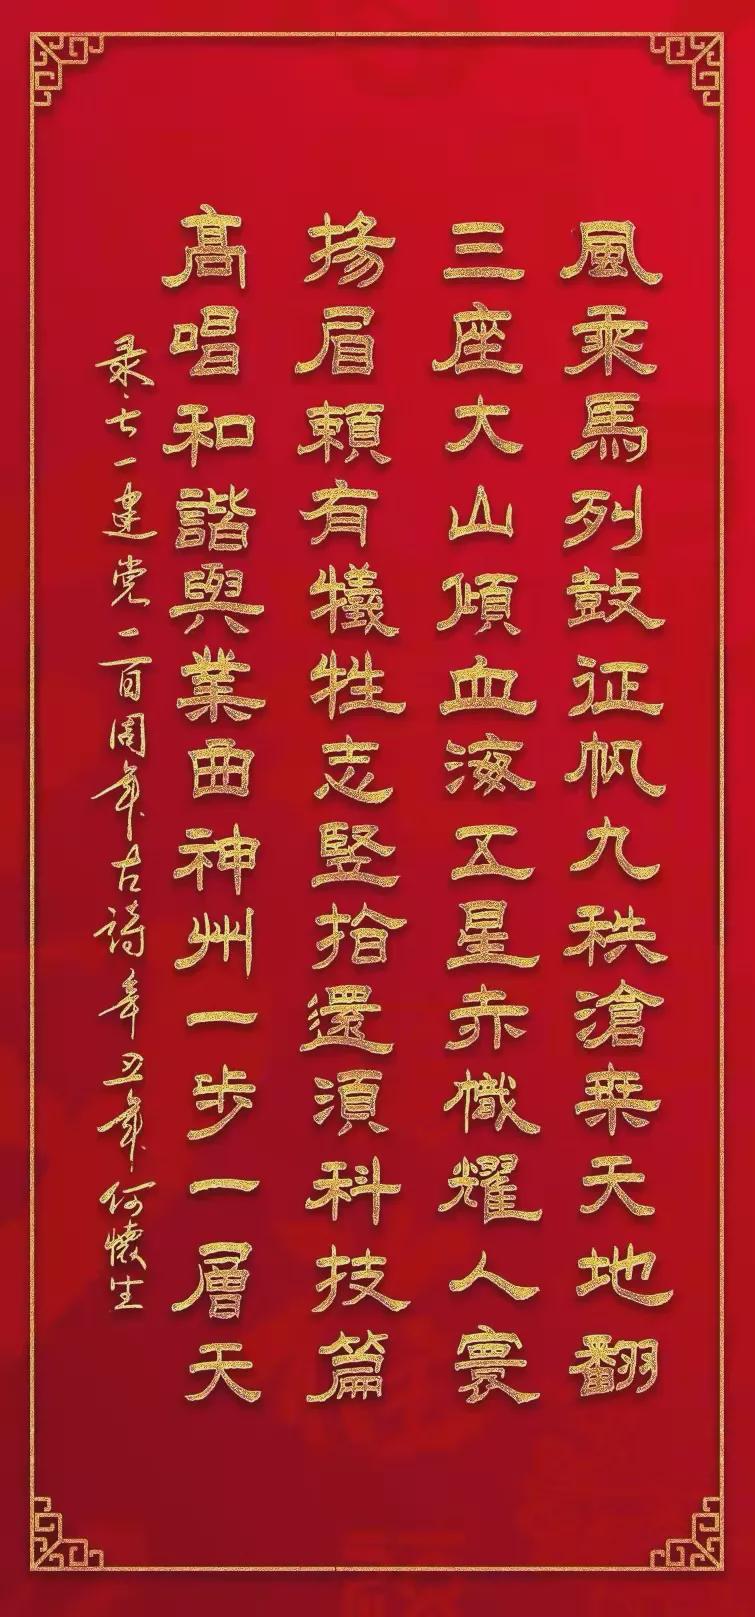 風乘馬列鼓征帆九秩滄桑天地翻
三座大山傾血海五星赤幟耀人寰
揚眉賴有犧牲志竪指還須科技篇
高唱和諧興業曲神州一步一層天
录七一建党一百周年古詩辛丑年何懷生